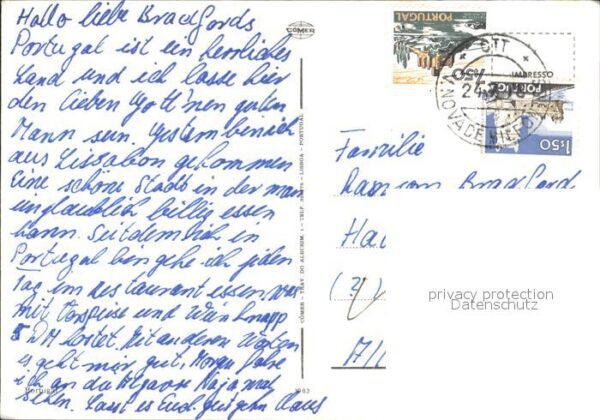 Hallo liebe Bradfords
Portugal ist ein herrliches
Land und ich lasse hier
den lieben Gott 'nen guten
Mann sein. Gestern bin ich
aus Lissabon gekommen
Eine schöne Stadt in der man
unglaublich billig essen
kann. Seitdem ich in
Portugal bin gehe ich jeden
Tag im Restaurant essen, was
mit Vorspeise und Wein knapp
5 DM kostet. Mit anderen Worten
es geht mir gut, Morgen fahre
ich an die Algarve Naja mal
sehen. Lasst es Euch gut gehn Claus
COMER
COMER - TRAV. DO ALECRIM, 1 - TELF. - LISBOA - PORTUGAL
Portugal
PORTUGAL
CTT
NOVA DE MILFONTES
IMPRESSO
PORTUGAL
1$50
Familie
Bradford
Ha
(?)
privacy protection
Datenschutz